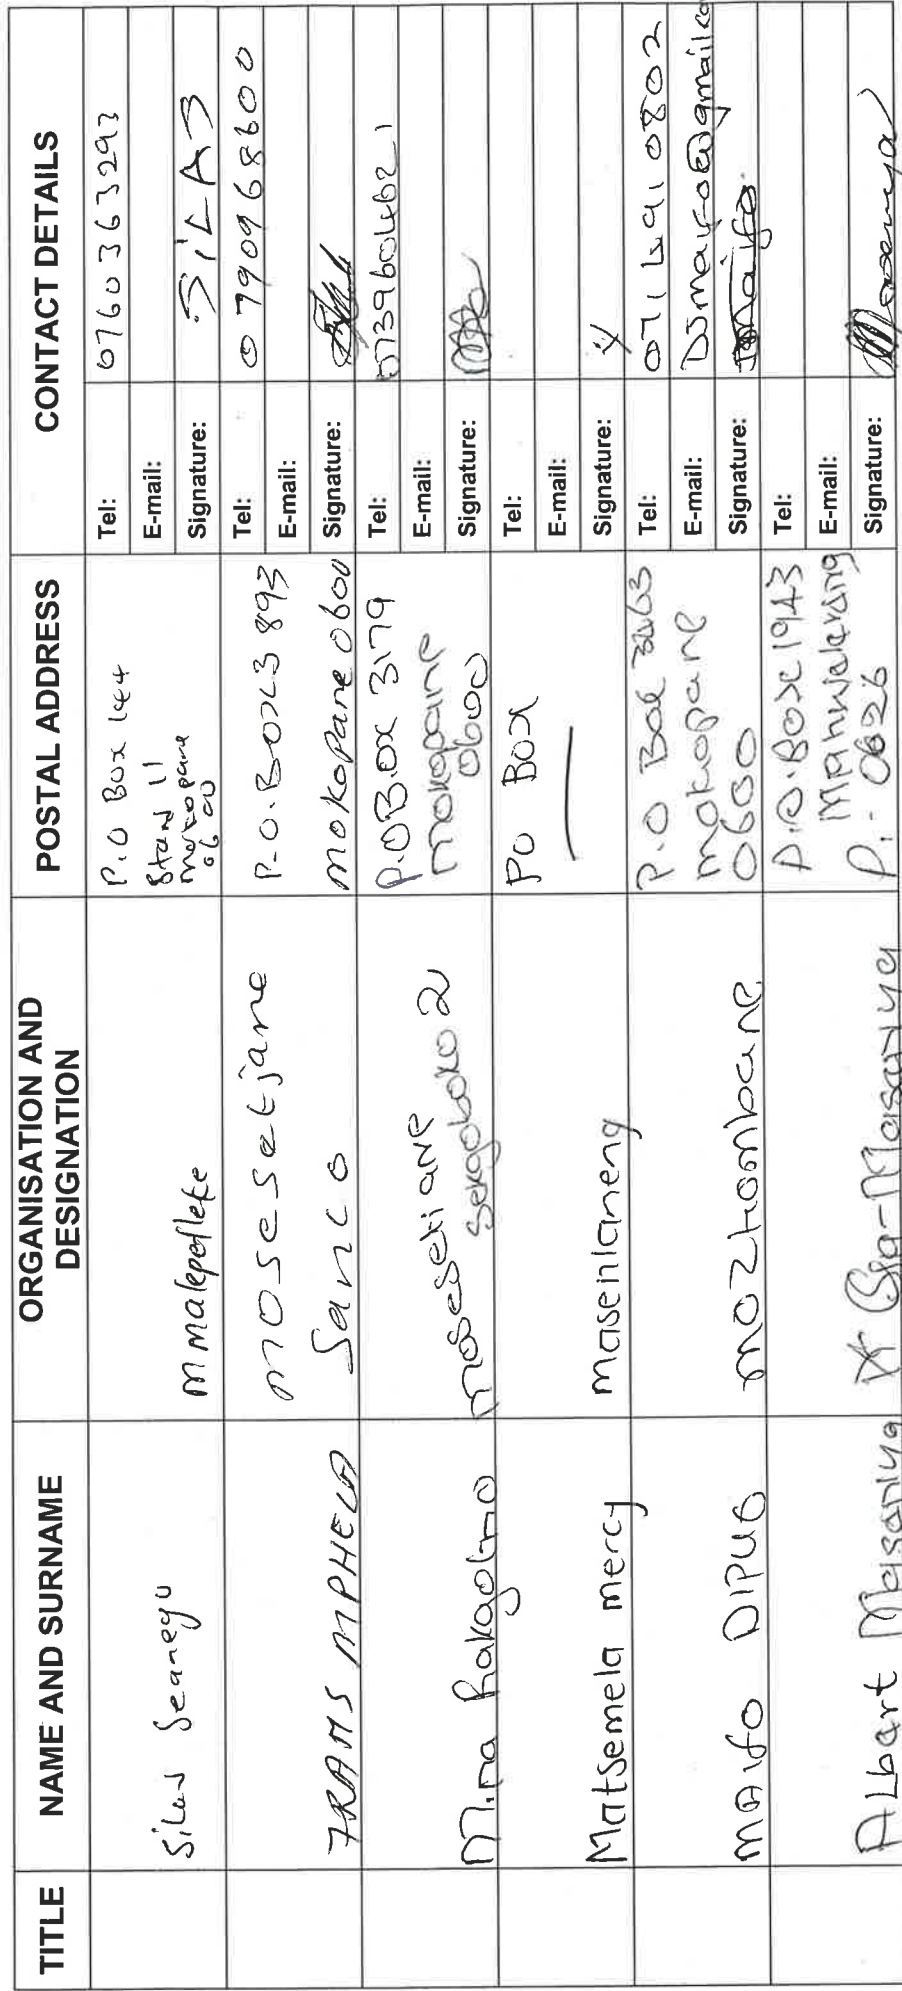 TITLE
NAME AND SURNAME
ORGANISATION AND
DESIGNATION
POSTAL ADDRESS
CONTACT DETAILS
Silas Seanego
Mmalepetleke
P.O Box 144
Stand 11
Mokopane
0600
Tel: 0760363293
E-mail:
Signature: SILAS
FRANS MPHELA
Mosesetjane
Sanco
P.O. Box 3893
Mokopane 0600
Tel: 0790968600
E-mail:
Signature:
Mina Rakgolmo
Mosesetjane
Sekgoboko 2
P.O Box 3179
Mokopane
0600
Tel: 0739604621
E-mail:
Signature:
Matsemela mercy
Masenlaneng
PO BOX
Tel:
E-mail:
Signature:
MAIFO DIPUO
Mozhombane
P.O Box
Mokopane
0600
Tel: 0714910802
E-mail:
Signature: Maifo
Albert Masanya
Ga-Masanya
P.O. Box 1943
Mahwelereng
P. 0626
Tel:
E-mail:
Signature: